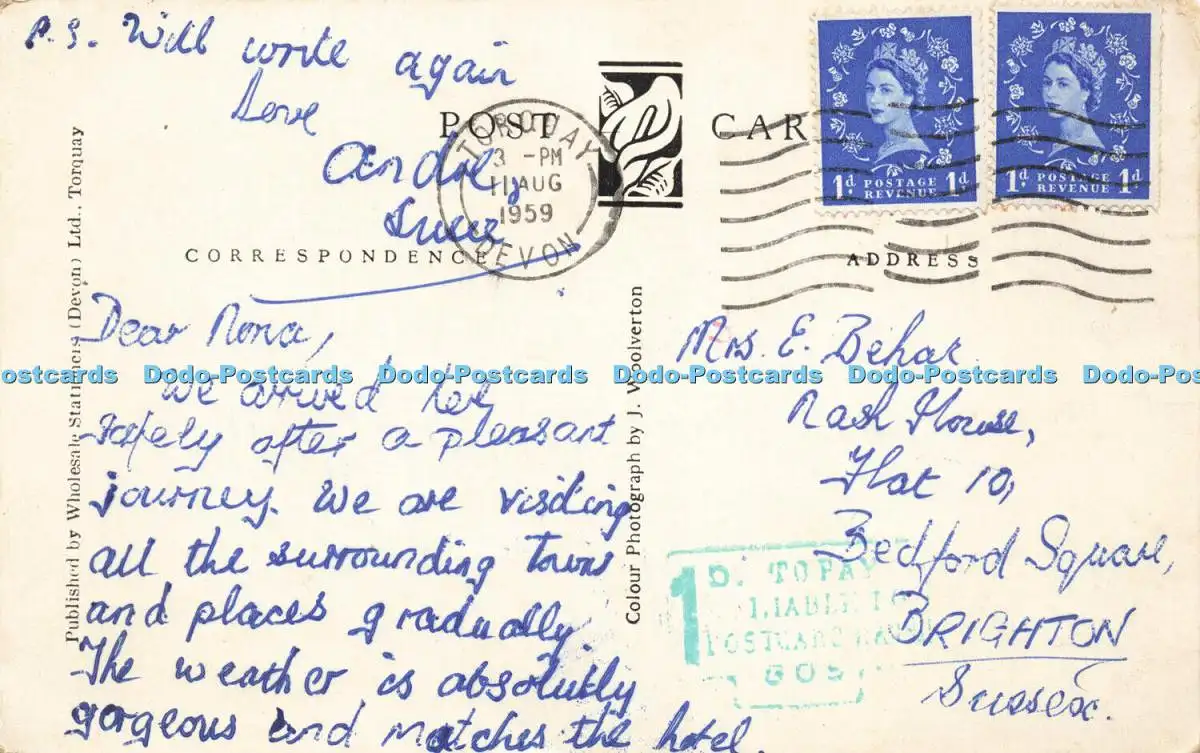 P.S. Will write again
Love
POST CARD
TORQUAY
3 -PM
11 AUG
1959
DEVON
1d POSTAGE REVENUE 1d
1d POSTAGE REVENUE 1d
CORRESPONDENCE
ADDRESS
Dear Nona,
We arrived here
safely after a pleasant
journey. We are visiting
all the surrounding towns
and places gradually
The weather is absolutely
gorgeous and matches the hotel.
Mrs. E. Behar
Nash House,
Flat 10,
Bedford Square,
BRIGHTON
Sussex.
1D. TO PAY
LIABLE TO
POSTCARD RATE
Published by Wholesale Stationers (Devon) Ltd., Torquay
Colour Photograph by J. Woolverton
ostcards Dodo-Postcards Dodo-Postcards Dodo-Postcards Dodo-Postcards Dodo-Po